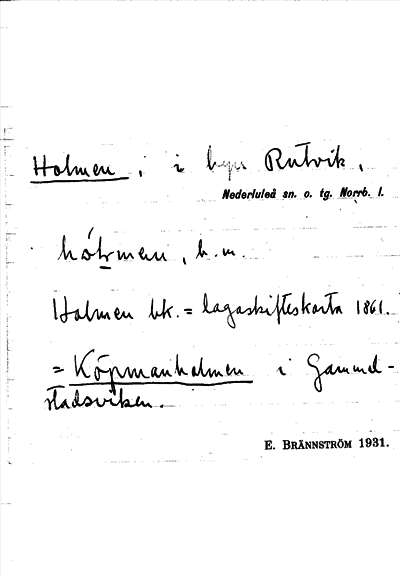 Holmen, i byn Rutvik,
Nederluleå sn. o. tg. Norrb. l.
b. m.
Holmen bk. = lagaskifteskarta 1861.
= Köpmanholmen i Gammel-
stadsviken.
E. BRÄNNSTRÖM 1931.